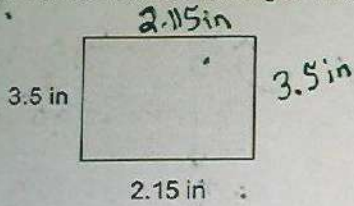 2.115in
3.5 in
3.5 in
2.15 in